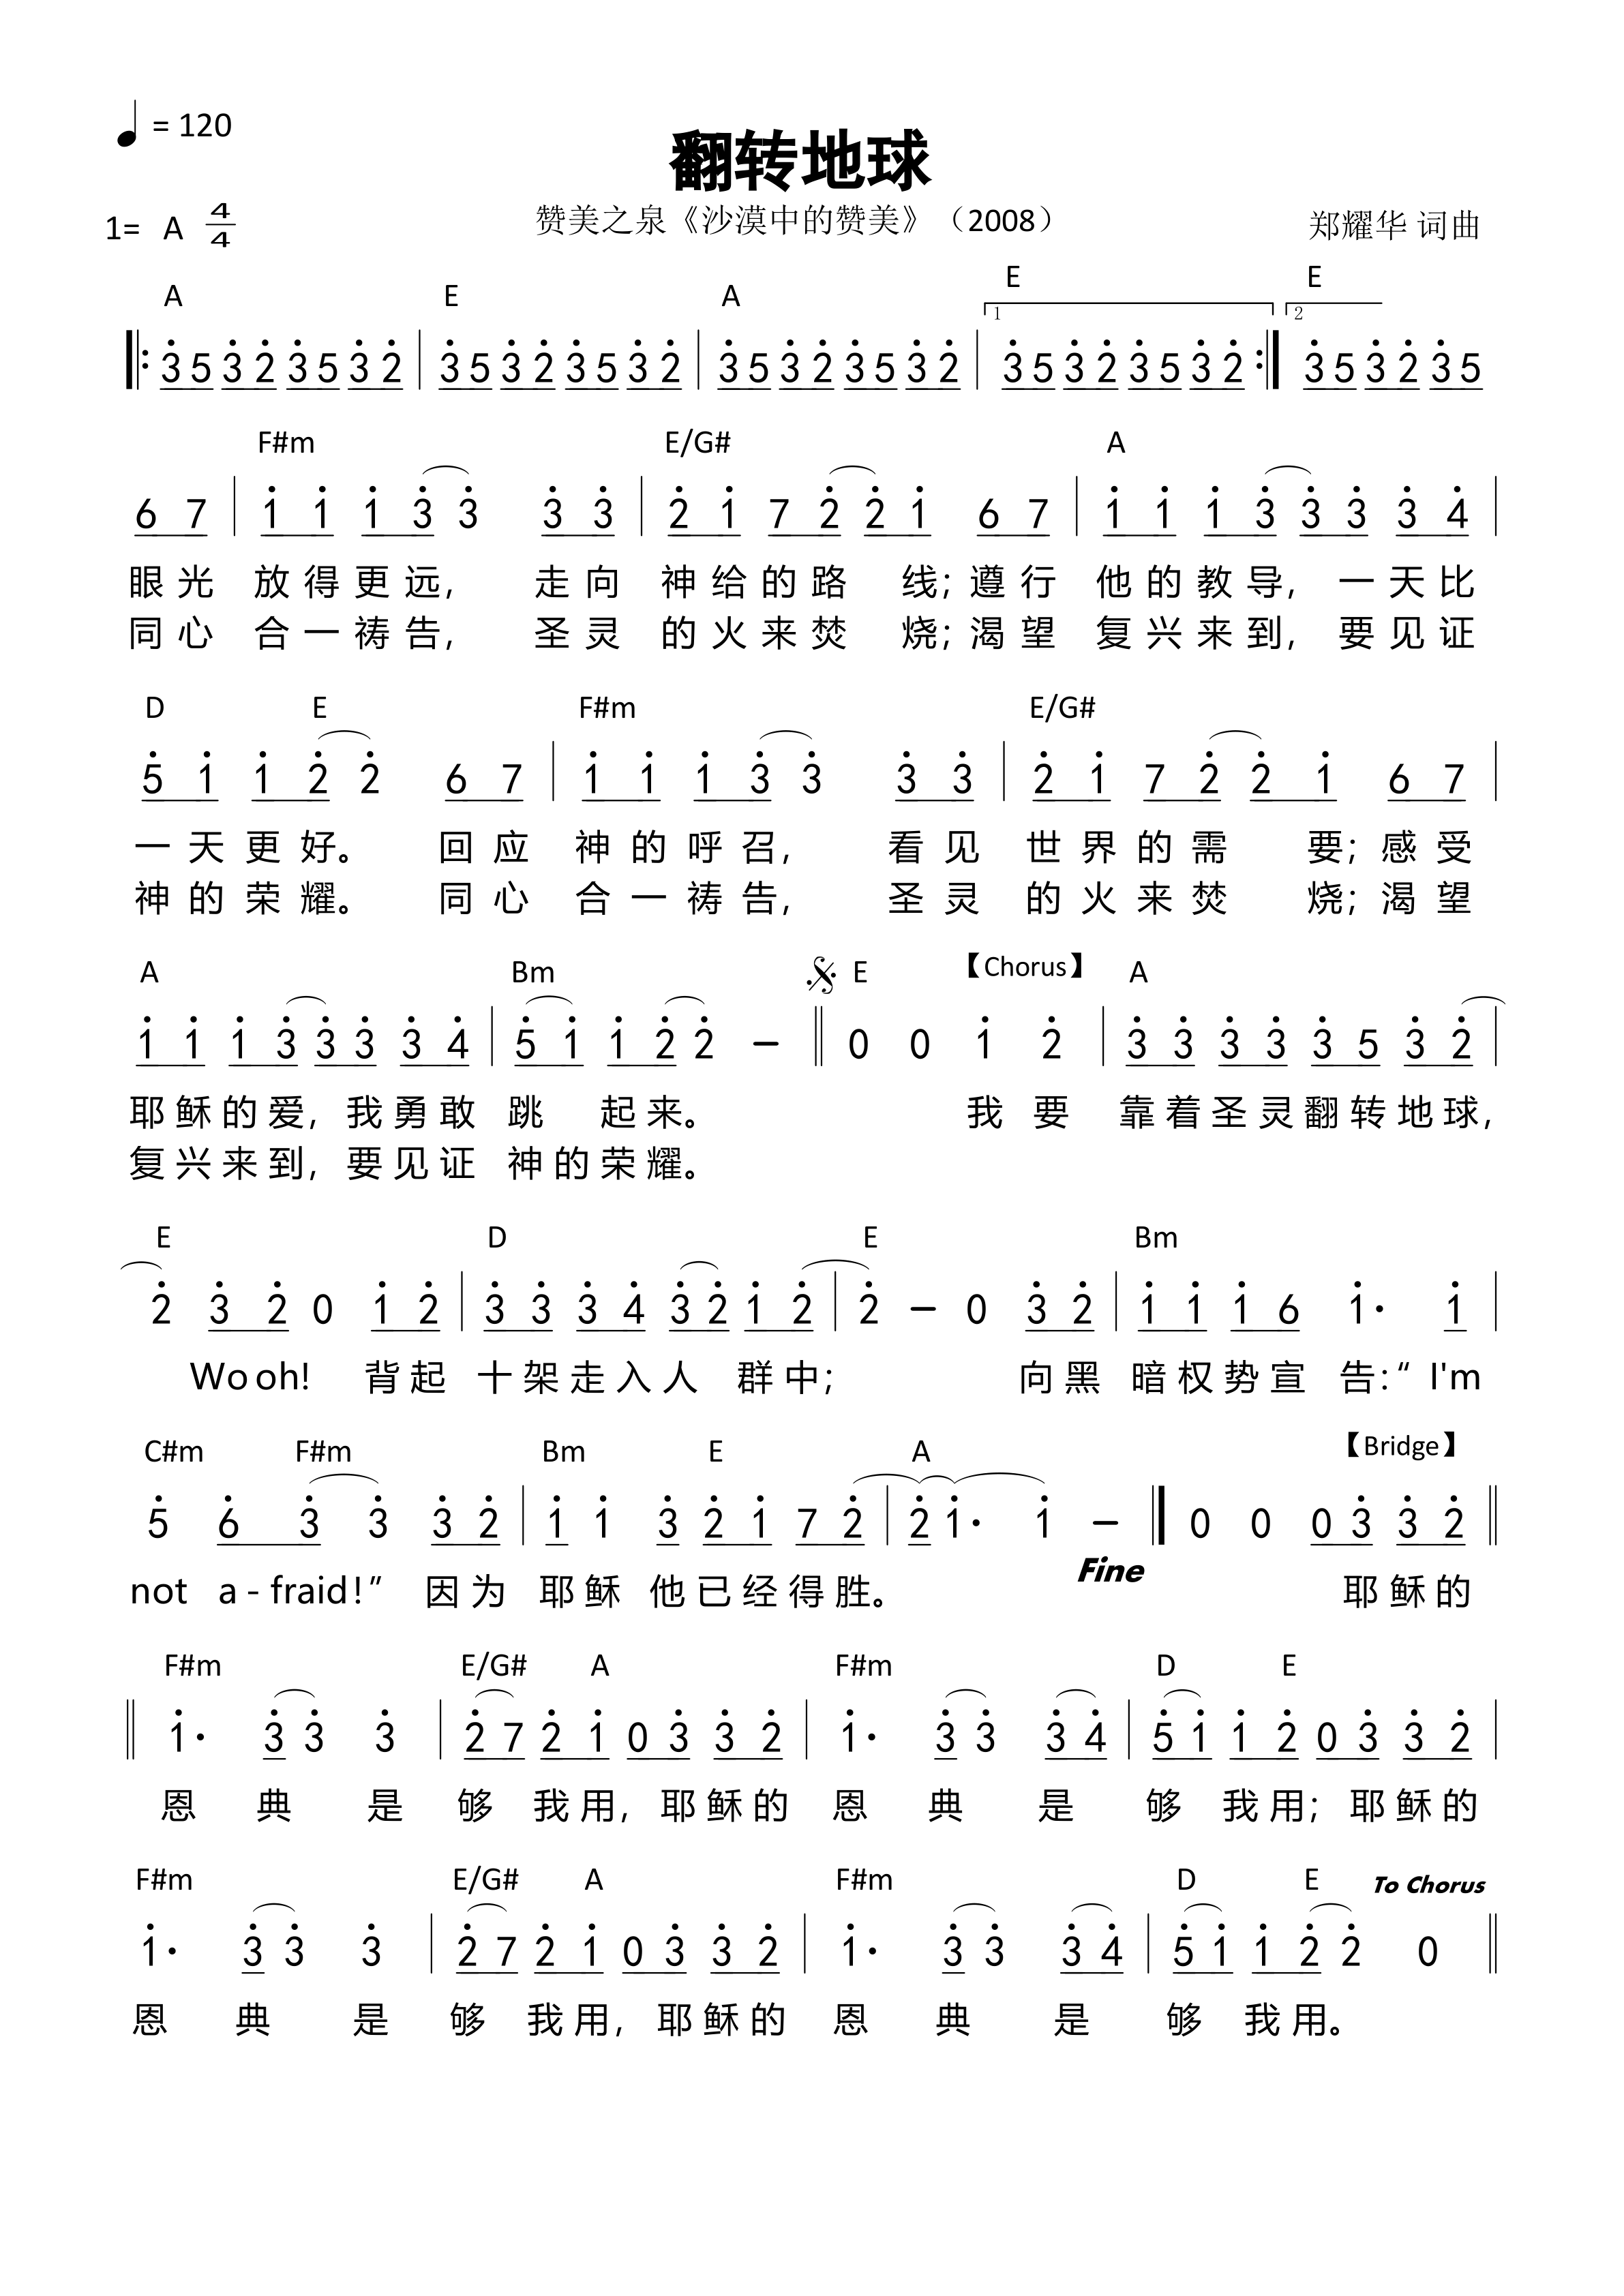 = 120
翻转地球
1= A 4/4
赞美之泉《沙漠中的赞美》（2008）
郑耀华 词曲
A E A E E
1 2
3 5 3 2 3 5 3 2 | 3 5 3 2 3 5 3 2 | 3 5 3 2 3 5 3 2 | 3 5 3 2 3 5 3 2 :| 3 5 3 2 3 5
F#m E/G# A
6 7 | 1 1 1 3 3 3 3 | 2 1 7 2 2 1 6 7 | 1 1 1 3 3 3 3 4 |
眼光 放得更远， 走向 神给的路 线；遵行 他的教导，一天比
同心 合一祷告， 圣灵 的火来焚 烧；渴望 复兴来到，要见证
D E F#m E/G#
5 1 1 2 2 6 7 | 1 1 1 3 3 3 3 | 2 1 7 2 2 1 6 7 |
一天更好。 回应 神的呼召， 看见 世界的需 要；感受
神的荣耀。 同心 合一祷告， 圣灵 的火来焚 烧；渴望
A Bm E 【Chorus】 A
1 1 1 3 3 3 3 4 | 5 1 1 2 2 – || 0 0 1 2 | 3 3 3 3 3 5 3 2 |
耶稣的爱，我勇敢 跳 起来。 我 要 靠着圣灵翻转地球，
复兴来到，要见证 神的荣耀。
E D E Bm
2 3 2 0 1 2 | 3 3 3 4 3 2 1 2 | 2 – 0 3 2 | 1 1 1 6 1· 1 |
Wo oh! 背起 十架走入人 群中； 向黑 暗权势宣 告：“ I'm
C#m F#m Bm E A 【Bridge】
5 6 3 3 3 2 | 1 1 3 2 1 7 2 | 2 1· 1 – || 0 0 0 3 3 2 ||
Fine
not a - fraid!” 因为 耶稣 他已经得胜。 耶稣的
F#m E/G# A F#m D E
|| 1· 3 3 3 | 2 7 2 1 0 3 3 2 | 1· 3 3 3 4 | 5 1 1 2 0 3 3 2 |
恩 典 是 够 我用，耶稣的 恩 典 是 够 我用；耶稣的
F#m E/G# A F#m D E To Chorus
1· 3 3 3 | 2 7 2 1 0 3 3 2 | 1· 3 3 3 4 | 5 1 1 2 2 0 ||
恩 典 是 够 我用，耶稣的 恩 典 是 够 我用。